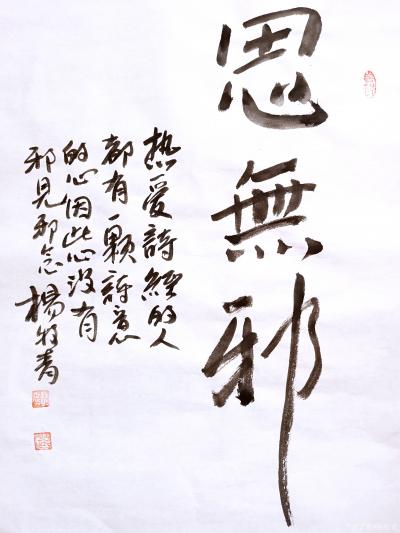 思無邪
热爱詩經的人
都有一颗詩意
的心因此心没有
邪見邪念 楊牧青